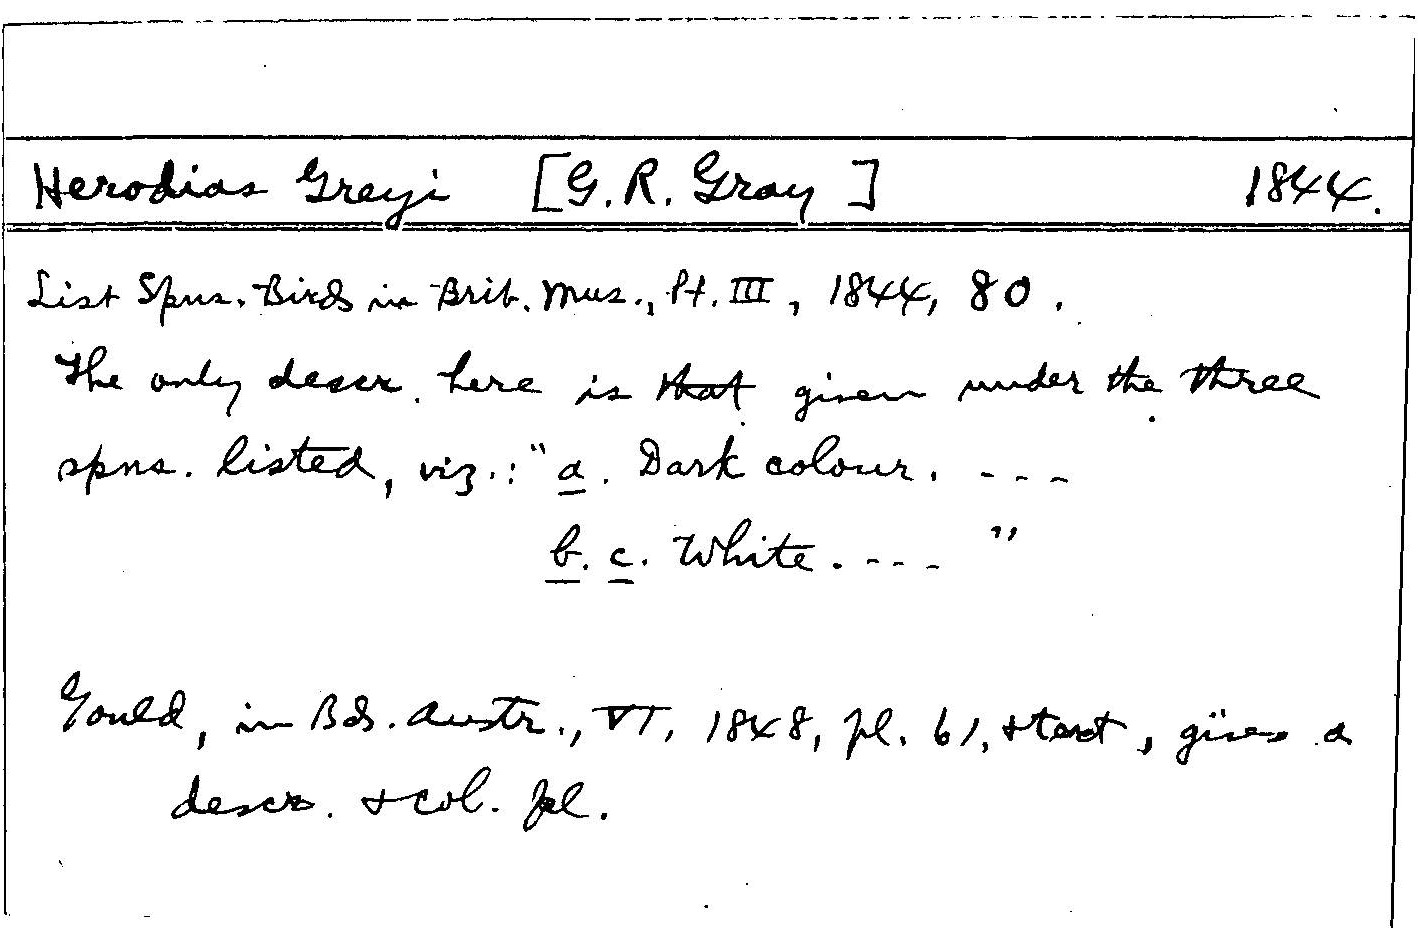 Herodias Greyi [G. R. Gray] 1844.
List Spns. Birds in Brit. Mus., Pt. III, 1844, 80.
The only descr. here is that given under the three
spns. listed, viz.: "a. Dark colour. - - -
b. c. White. - - - "
Gould, in Bds. Austr., VI, 1848, pl. 61, + text, gives a
descr. + col. pl.